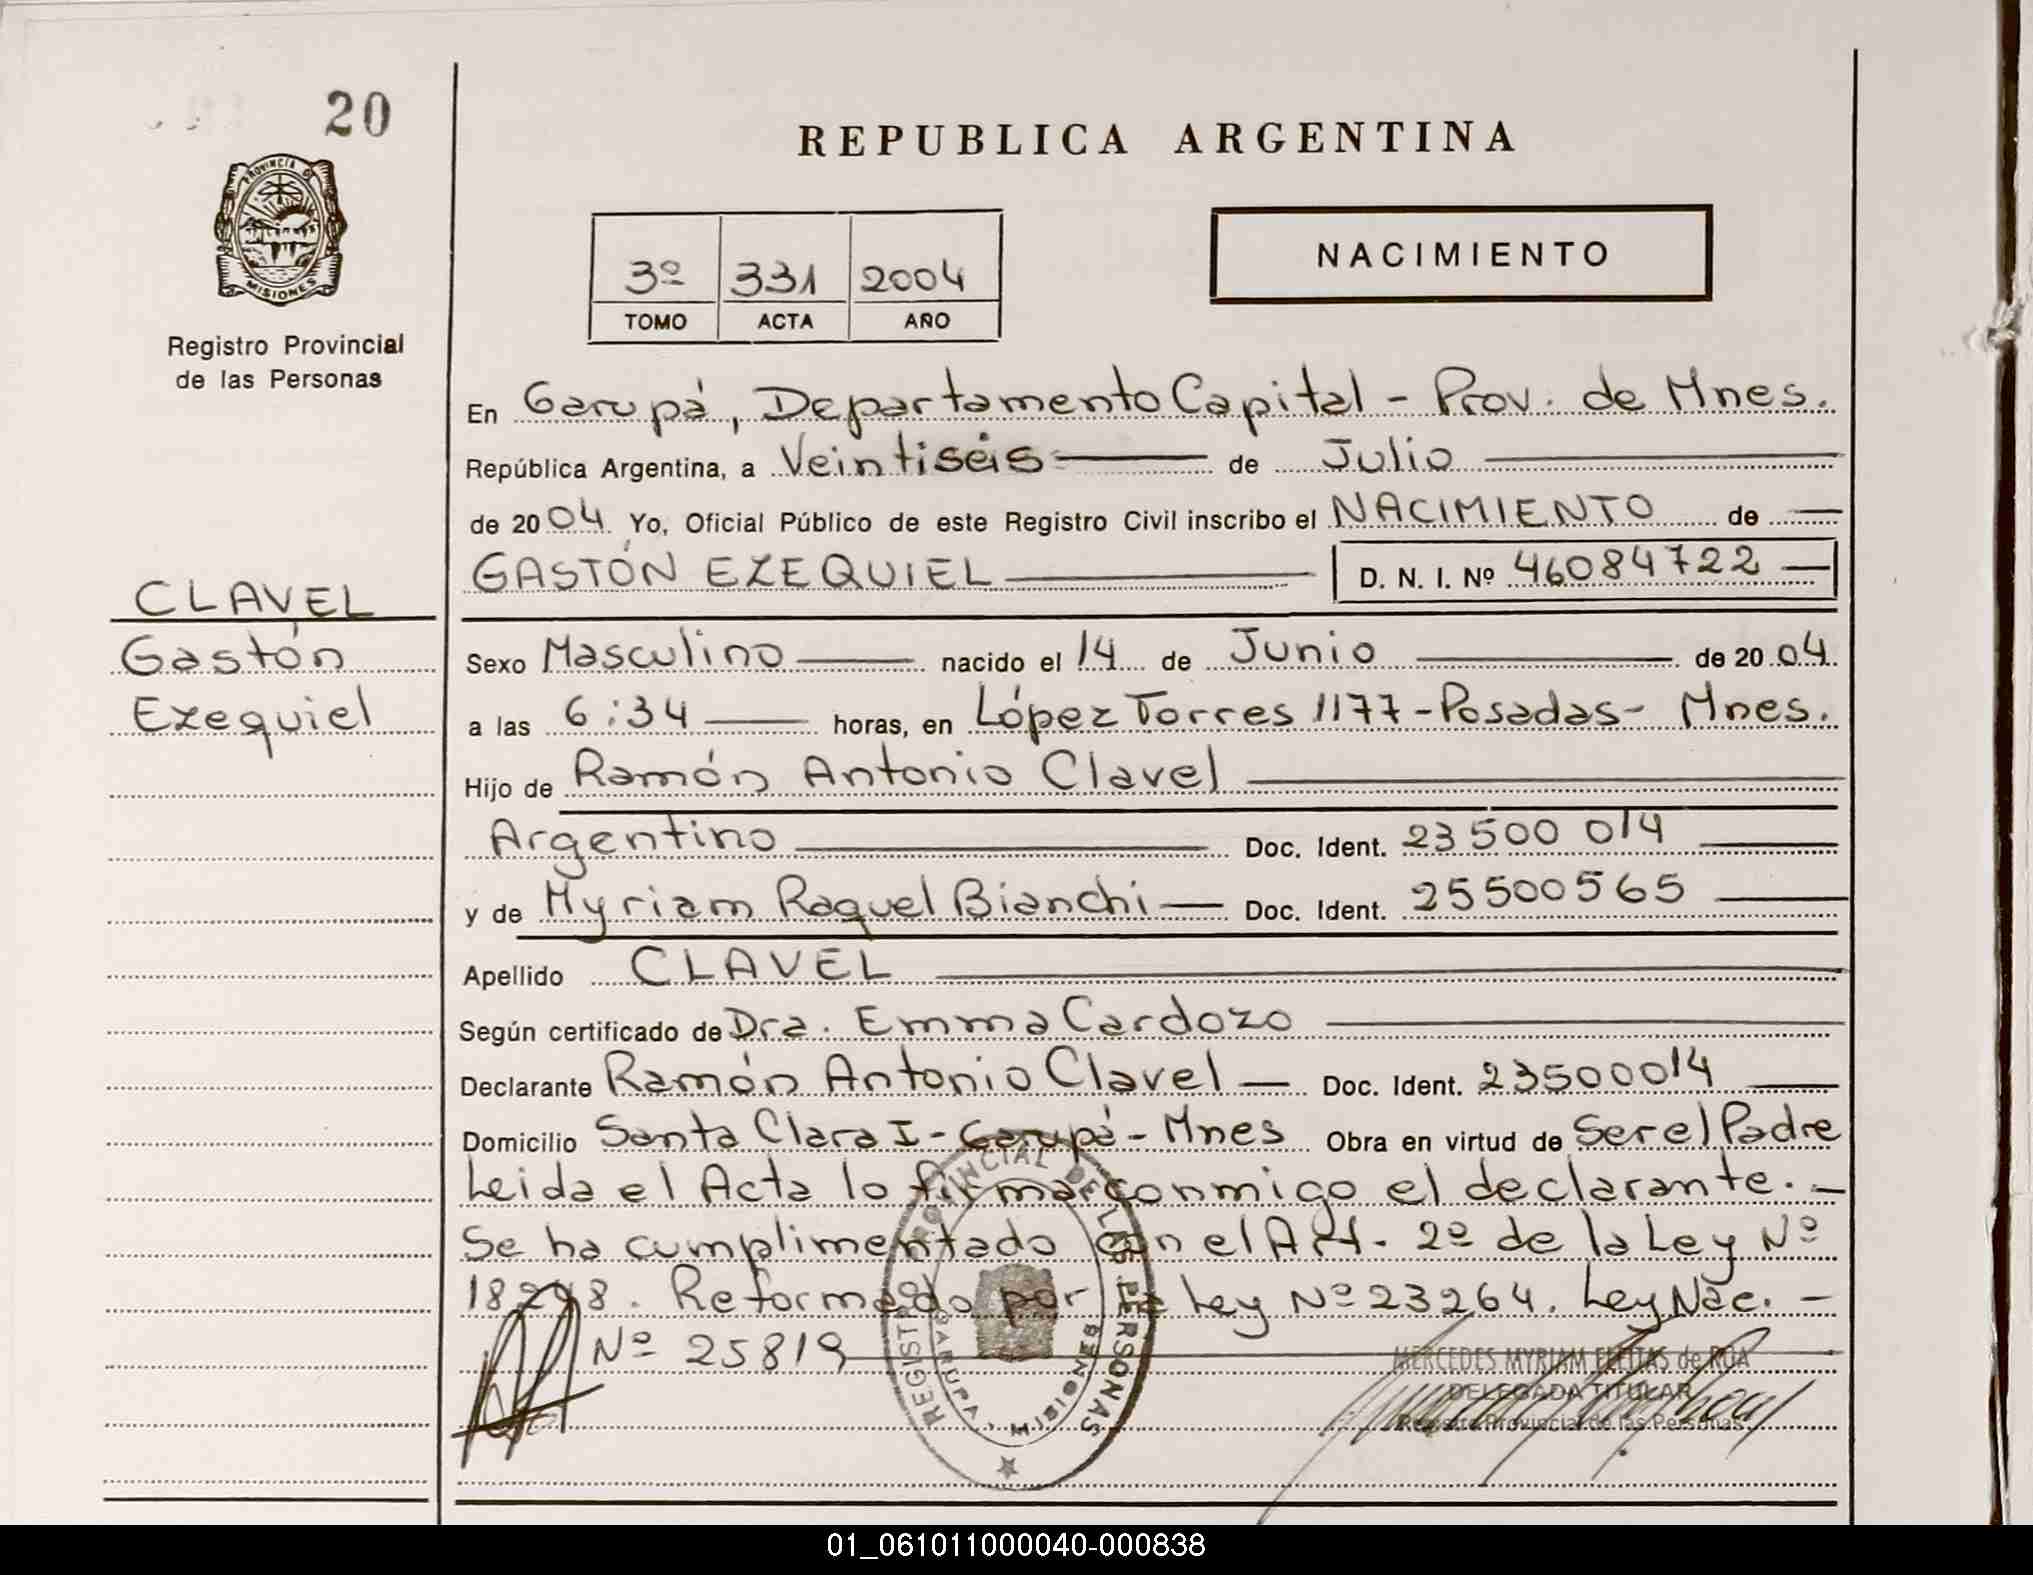 20
REPUBLICA ARGENTINA
PROVINCIA DE
MISIONES
Registro Provincial
de las Personas
3º 331 2004
TOMO ACTA AÑO
NACIMIENTO
En Garupá, Departamento Capital - Prov. de Mnes.
República Argentina, a Veintiséis de Julio
de 2004 Yo, Oficial Público de este Registro Civil inscribo el NACIMIENTO de
GASTÓN EZEQUIEL D. N. I. Nº 46084722
CLAVEL
Gastón
Ezequiel
Sexo Masculino nacido el 14 de Junio de 2004
a las 6:34 horas, en López Torres 1177-Posadas- Mnes.
Hijo de Ramón Antonio Clavel
Argentino Doc. Ident. 23500 014
y de Myriam Raquel Bianchi Doc. Ident. 25500565
Apellido CLAVEL
Según certificado de Dra. Emma Cardozo
Declarante Ramón Antonio Clavel Doc. Ident. 23500014
Domicilio Santa Clara I - Garupá - Mnes Obra en virtud de Ser el Padre
Leida el Acta lo firma conmigo el declarante.
Se ha cumplimentado con el Art. 2º de la Ley Nº
18248. Reformado por la Ley Nº 23264. Ley Nac.
Nº 25819
REGISTRO PROVINCIAL DE LAS PERSONAS
GARUPA MISIONES
MERCEDES MYRIAM FLEITAS de RUA
DELEGADA TITULAR
Registro Provincial de las Personas
01_061011000040-000838